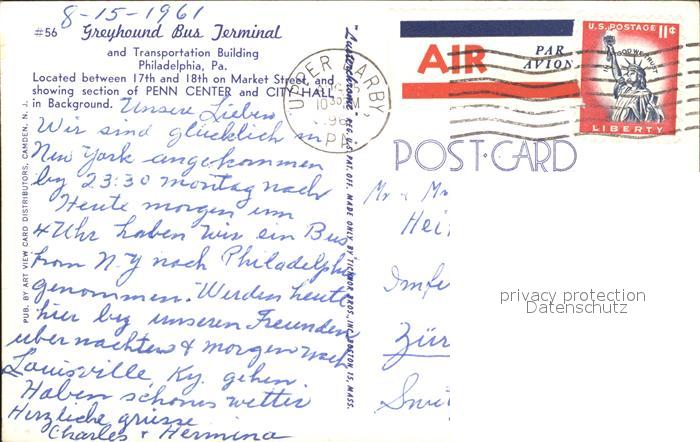 8-15-1961
#56 Greyhound Bus Terminal
and Transportation Building
Philadelphia, Pa.
Located between 17th and 18th on Market Street, and
showing section of PENN CENTER and CITY HALL
in Background.
Unsere Lieben
Wir sind glücklich in
New York angekommen
by 23:30 montag nach
Heute morgen um
4 Uhr haben wir ein Bus
from N.Y nach Philadelphia
genommen. Werden heute
hier by unseren Freunden
ubernachten & morgen nach
Louisville, Ky. gehen.
Haben schones wetter
Herzliche grüsse
Charles + Hermina
PUB. BY ART VIEW CARD DISTRIBUTORS, CAMDEN, N. J.
"Lusterchrome" REG. U.S. PAT. OFF. MADE ONLY BY TICHNOR BROS. INC. BOSTON 15, MASS.
UPPER DARBY,
10 30 AM
196
PA
AIR
PAR
AVION
U.S. POSTAGE 11¢
IN GOD WE TRUST
LIBERTY
POST-CARD
Mr & Mr
Hei
Zür
privacy protection
Datenschutz